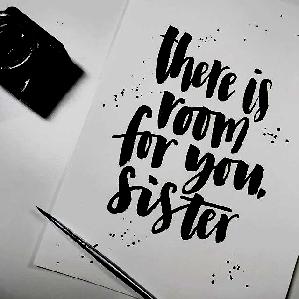 there is
room
for you,
sister